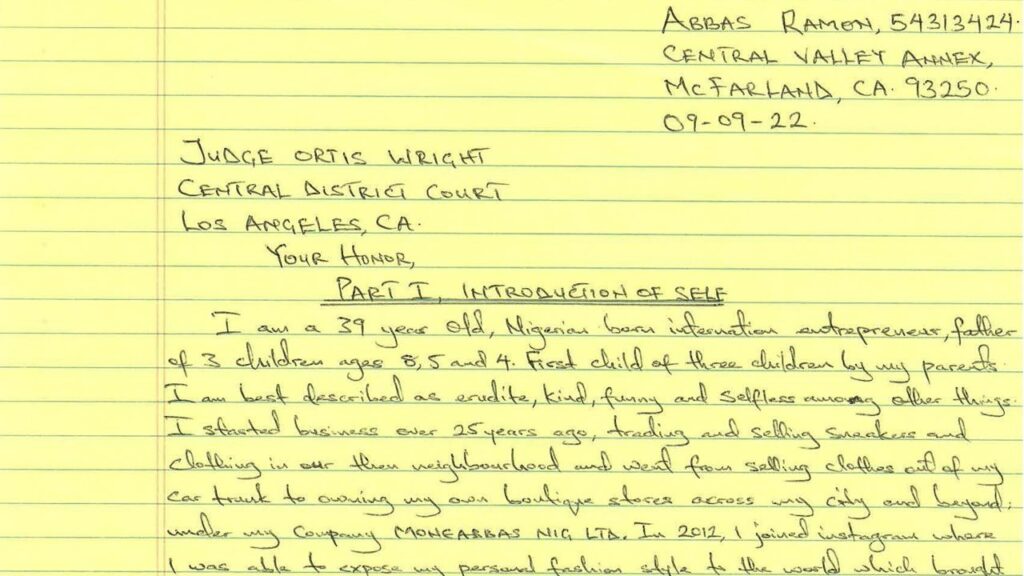 ABBAS RAMON, 54313424.
CENTRAL VALLEY ANNEX,
McFARLAND, CA. 93250.
09-09-22.
JUDGE ORTIS WRIGHT
CENTRAL DISTRICT COURT
LOS ANGELES, CA.
YOUR HONOR,
PART I, INTRODUCTION OF SELF
I am a 39 year old, Nigerian born internation entrepreneur, father
of 3 children ages 8, 5 and 4. First child of three children by my parents.
I am best described as erudite, kind, funny and selfless among other things.
I started business over 25 years ago, trading and selling sneakers and
clothing in our then neighbourhood and went from selling clothes out of my
car trunk to owning my own boutique stores across my city and beyond;
under my company MONEABBAS NIG LTD. In 2012, I joined instagram where
I was able to expose my personal fashion style to the world which brought